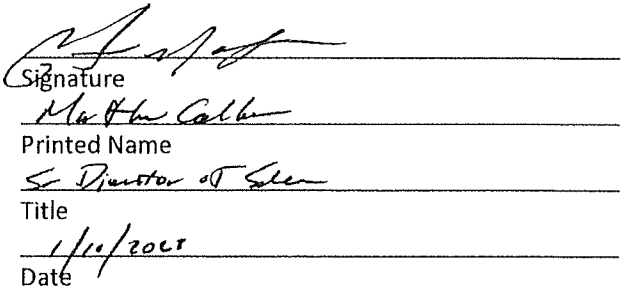 Signature
Matthew
Printed Name
Sr Director of Sales
Title
1/10/
Date